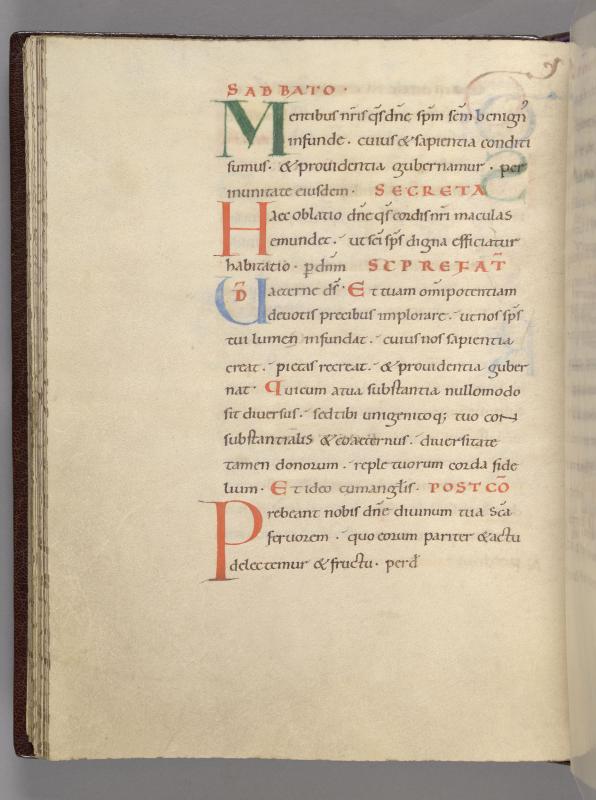 SABBATO ·
Mentibus nr̄is q̄s dn̄e sp̄m sc̄m benign᾽
infunde . cuius & sapientia conditi
sumus . & prouidentia gubernamur . per
inunitate eiusdem . SECRETA
Haec oblatio dn̄e q̄s cordis nr̄i maculas
emundet . ut sc̄i sp̄s digna efficiatur
habitatio . p dnm SCPREFAT̄
UD aeterne ds̄ . Et tuam om̄ipotentiam
deuotis precibus implorare . ut nos sp̄s
tui lumen infundat . cuius nos sapientia
creat . pietas recreat . & prouidentia guber
nat . Qui cum a tua substantia nullomodo
sit diuersus . sed tibi unigenitoq; tuo con
substantialis & coaeternus . diuersitate
tamen donorum . reple tuorum corda fide
lium . Et ideo cum angl̄is . POST CŌ
Prebeant nobis dn̄e diuinum tua sc̄a
feruorem . quo eorum pariter & actu
delectemur & fructu . per dn̄